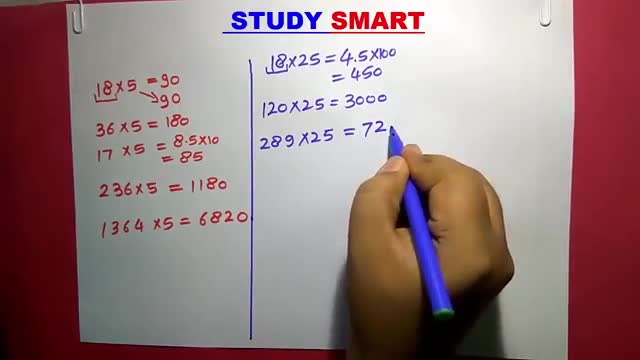 STUDY SMART
18×5 = 90
90
36×5 = 180
17×5 = 8.5×10
= 85
236×5 = 1180
1364×5 = 6820
18×25 = 4.5×100
= 450
120×25 = 3000
289×25 = 72